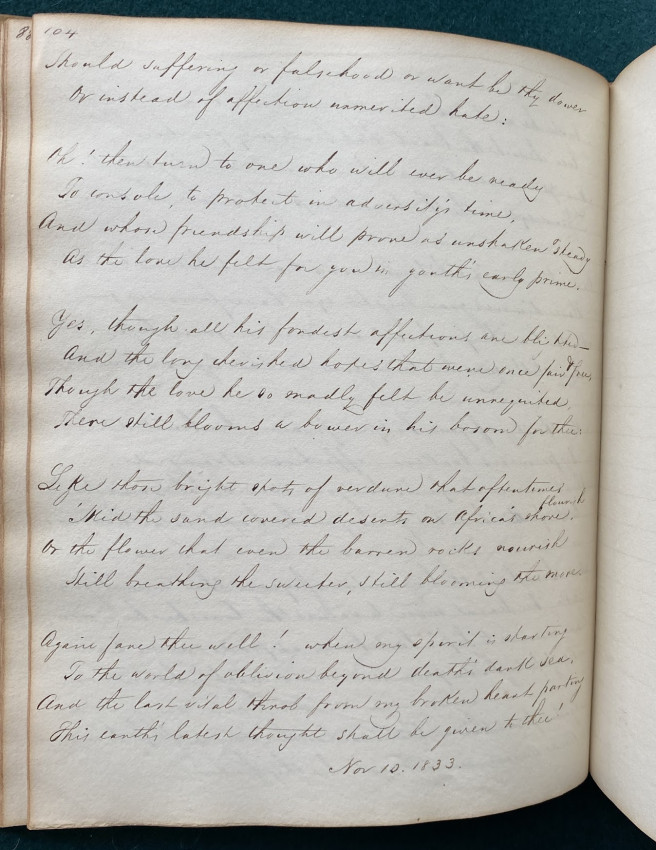 104
Should suffering or falsehood or want be thy dower
Or instead of affection unmerited hate:
Oh! then turn to one who will ever be ready
To console, to protect in adversity's time,
And whose friendship will prove as unshaken & steady
As the love he felt for you in youth's early prime.
Yes, though all his fondest affections are blighted
And the long cherished hopes that were once fair & free,
Though the love he so madly felt be unrequited,
There still blooms a bower in his bosom for thee:
Like those bright spots of verdure that oftentimes flourish
'Mid the sand covered deserts on Africa's shore.
Or the flower that even the barren rocks nourish
Still breathing the sweeter, still blooming the more.
Again fare thee well! when my spirit is starting
To the world of oblivion beyond death's dark sea,
And the last vital throb from my broken heart parting
This earth's latest thought shall be given to thee!
Nov 10. 1833.